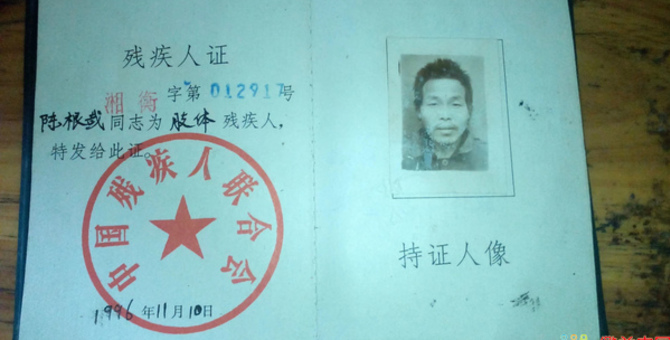 残疾人证
湘衡字第012917号
陈根武同志为肢体残疾人，
特发给此证。
中国残疾人联合会
1996年11月10日
持证人像